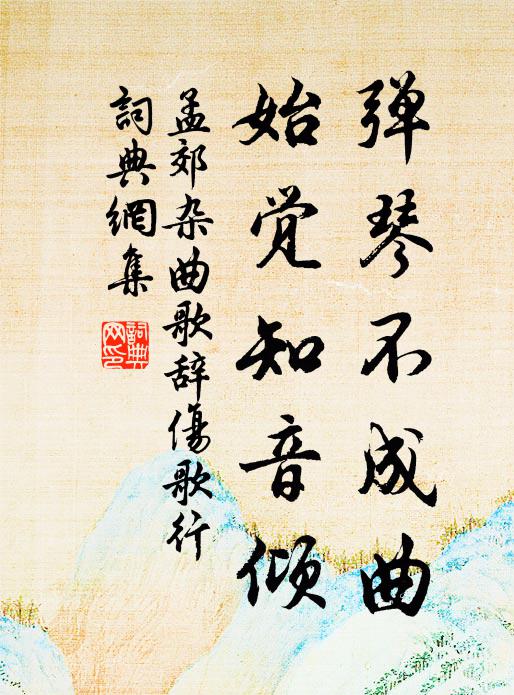 弹琴不成曲
始觉知音倾
孟郊杂曲歌辞傷歌行
詞典網集
詞典
网印